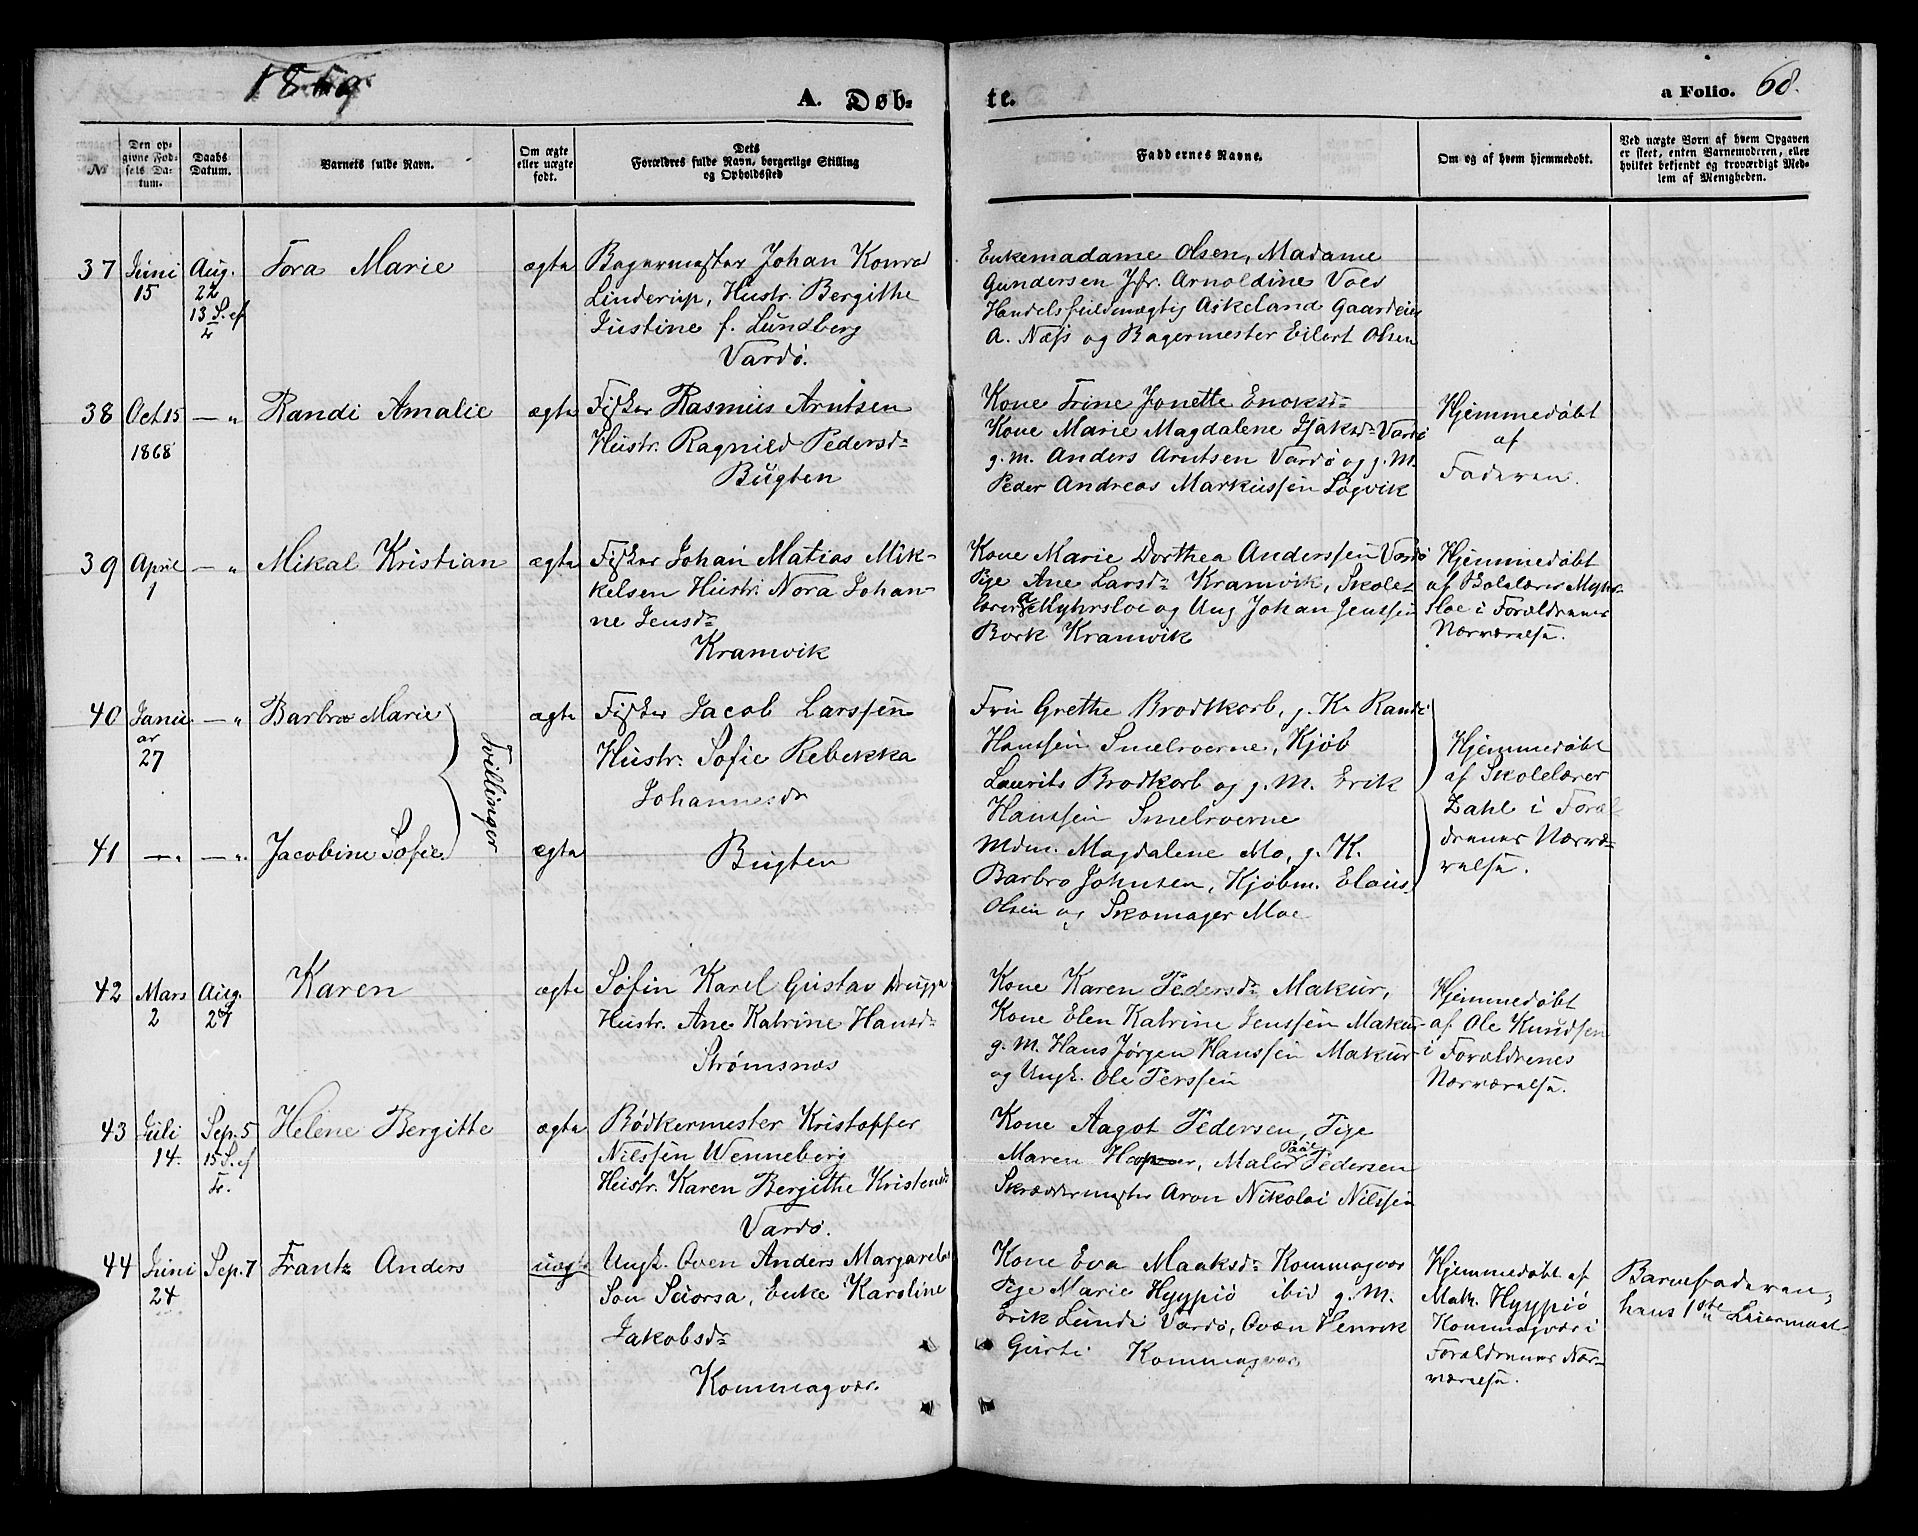 1869.
A. Døb-
te.
a Folio. 68.
№
Den op-
givne Fød-
sels Da-
tum.
Daabs
Datum.
Barnets fulde Navn.
Om ægte
eller uægte
født.
Dets
Forældres fulde Navn, borgerlige Stilling
og Opholdssted
Faddernes Navne.
Om og af hvem hjemmedøbt.
Ved uægte Børn af hvem Opgaven
er skeet, enten Barnemoderen, eller
hvilket bekjendt og troværdigt Med-
lem af Menigheden.
37
Juni
15
Aug.
22
13 S. ef
Tr
Tora Marie
ægte
Bagermester Johan Konrad
Linderup, Hustr. Bergithe
Justine f. Lundberg
Vardø.
Enkemadame Olsen, Madame
Gundersen Jfr. Arnoldine Vold
Handelsfuldmægtig Askeland Gaardeier
A. Næss og Bagermester Eilert Olsen
38
Oct 15
1868
— "
Randi Amalie
ægte
Fisker Rasmus Arntsen
Hustr. Ragnild Pedersd:
Bugten
Kone Trine Jonette Enoksd:
Kone Marie Magdalene Isaksd: Vardø
g. M. Anders Arntsen Vardø og g. M.
Peder Andreas Markussen Løgvik
Hjemmedøbt
af
Faderen.
39
April
1
— "
Mikal Kristian
ægte
Fisker Johan Matias Mik-
kelsen Hustr. Nora Johan-
ne Jensd:
Kramvik
Kone Marie Dorthea Anderssen Vardø
Pige Ane Larsd: Kramvik, Skole-
lærer Myhrsloe og Ung Johan Jenssen
Bork Kramvik
Hjemmedøbt
af Skolelærer Myhr-
sloe i Forældrenes
Nærværelse.
40
Janu-
ar
27
— "
Barbro Marie
Tvillinger
ægte
Fisker Jacob Larssen
Hustr. Sofie Rebekka
Johannesdr
Fru Grethe Brodtkorb, g. K. Randi
Hanssen Smelrorene, Kjøb
Laurits Brodtkorb og g. M. Erik
Hanssen Smelrorene
Hjemmedøbt
af Skolelærer
Zahl i Foræl
drenes Nærvæ-
relse.
41
— "
— "
Jacobine Sofie
ægte
Bugten
Mdm. Magdalene Mo, g. K.
Barbro Johnsen, Kjøbm. Elaus
Olsen og Skomager Moe
42
Mars
2
Aug.
27
Karen
ægte
Søfin Karel Gustav Drugge
Hustr. Ane Katrine Hansd:
Strømsnæs
Kone Karen Pedersd: Makur,
Kone Elen Katrine Jenssen Makur
g. M. Hans Jørgen Hanssen Makur
og Ungk. Ole Perssen
Hjemmedøbt
af Ole Knudsen
i Forældrenes
Nærværelse.
43
Juli
14.
Sep. 5
15 S. ef
Tr.
Helene Bergitte
ægte
Bødkermester Kristoffer
Nilssen Wenneberg
Hustr. Karen Bergithe Kristensd
Vardø.
Kone Aagot Pedersen, Pige
Maren, Maler Paul Pedersen
Skræddermester Aron Nikolai Nilssen
44
Juni
24
Sep. 7
Frantz Anders
uægte
Ungk. Qven Anders Margarete
Søn Suorsa, Enke Karoline
Jakobsd:
Kommagvær.
Kone Eva Maaksd: Kommagvær
Pige Marie Hyypiö ibid g. M.
Erik Lundi Vardø, Qvæn Henrik
Gurti Kommagvær
Hjemmedøbt af
Math. Hyypiö
Kommagvær i
Forældrenes Nær-
værelse.
Barnefaderen,
hans 1ste Leiermaal